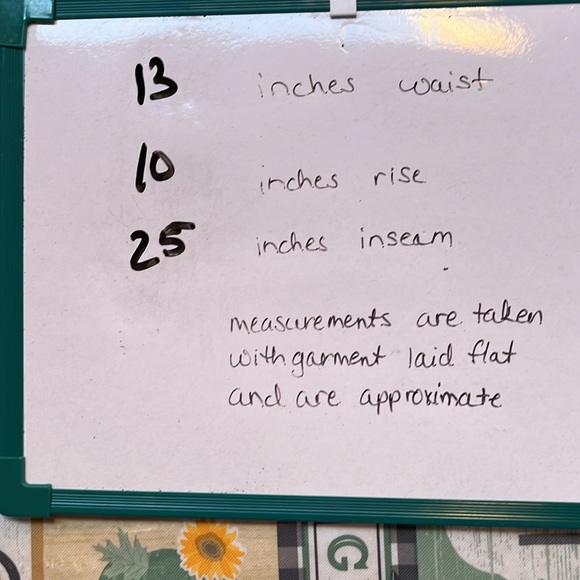 13 inches waist
10 inches rise
25 inches inseam
measurements are taken
with garment laid flat
and are approximate
G